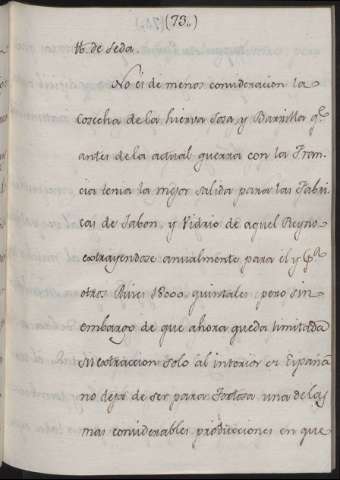 (73.)
tt. de Seda.
No és de menos consideracion la
cosecha de la hierva Sosa, y Barrilla qe.
antes de la actual guerra con la Fran-
cia tenia la mejor salida para las Fabri-
cas de Jabon, y Vidrio de aquel Reyno
extrayendose anualmente para èl y pr.
otros Paises 18000 quintales pero sin
embargo de que ahora queda limitada
su extraccion solo al interior de España
no deja de ser para Tortosa una de las
mas considerables producciones en que